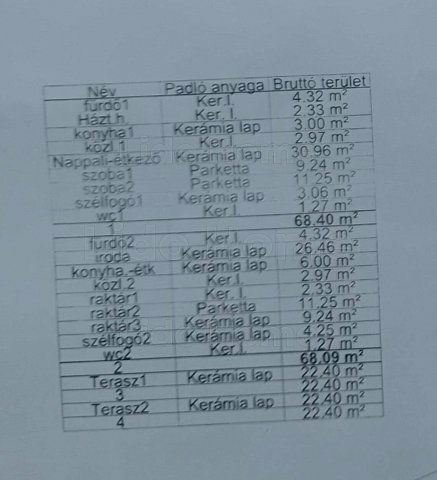 Név Padló anyaga Bruttó terület
fürdő1 Ker.l. 4.32 m²
Házt.h. Ker. l. 2.33 m²
konyha1 Kerámia lap 3.00 m²
közl.1 Ker.l. 2.97 m²
Nappali-étkező Kerámia lap 30.96 m²
szoba1 Parketta 9.24 m²
szoba2 Parketta 11.25 m²
szélfogó1 Kerámia lap 3.06 m²
wc1 Ker.l. 1.27 m²
1 68.40 m²
fürdő2 Ker.l. 4.32 m²
iroda Kerámia lap 26.46 m²
konyha.-étk Kerámia lap 6.00 m²
közl.2 Ker.l. 2.97 m²
raktár1 Ker. l. 2.33 m²
raktár2 Parketta 11.25 m²
raktár3 Kerámia lap 9.24 m²
szélfogó2 Kerámia lap 4.25 m²
wc2 Ker.l. 1.27 m²
2 68.09 m²
Terasz1 Kerámia lap 22.40 m²
3 22.40 m²
Terasz2 Kerámia lap 22.40 m²
4 22.40 m²